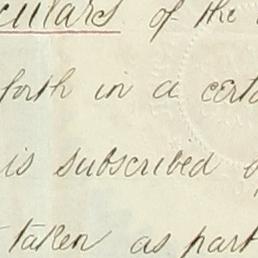 culars of the
forth in a certa
is subscribed
taken as part